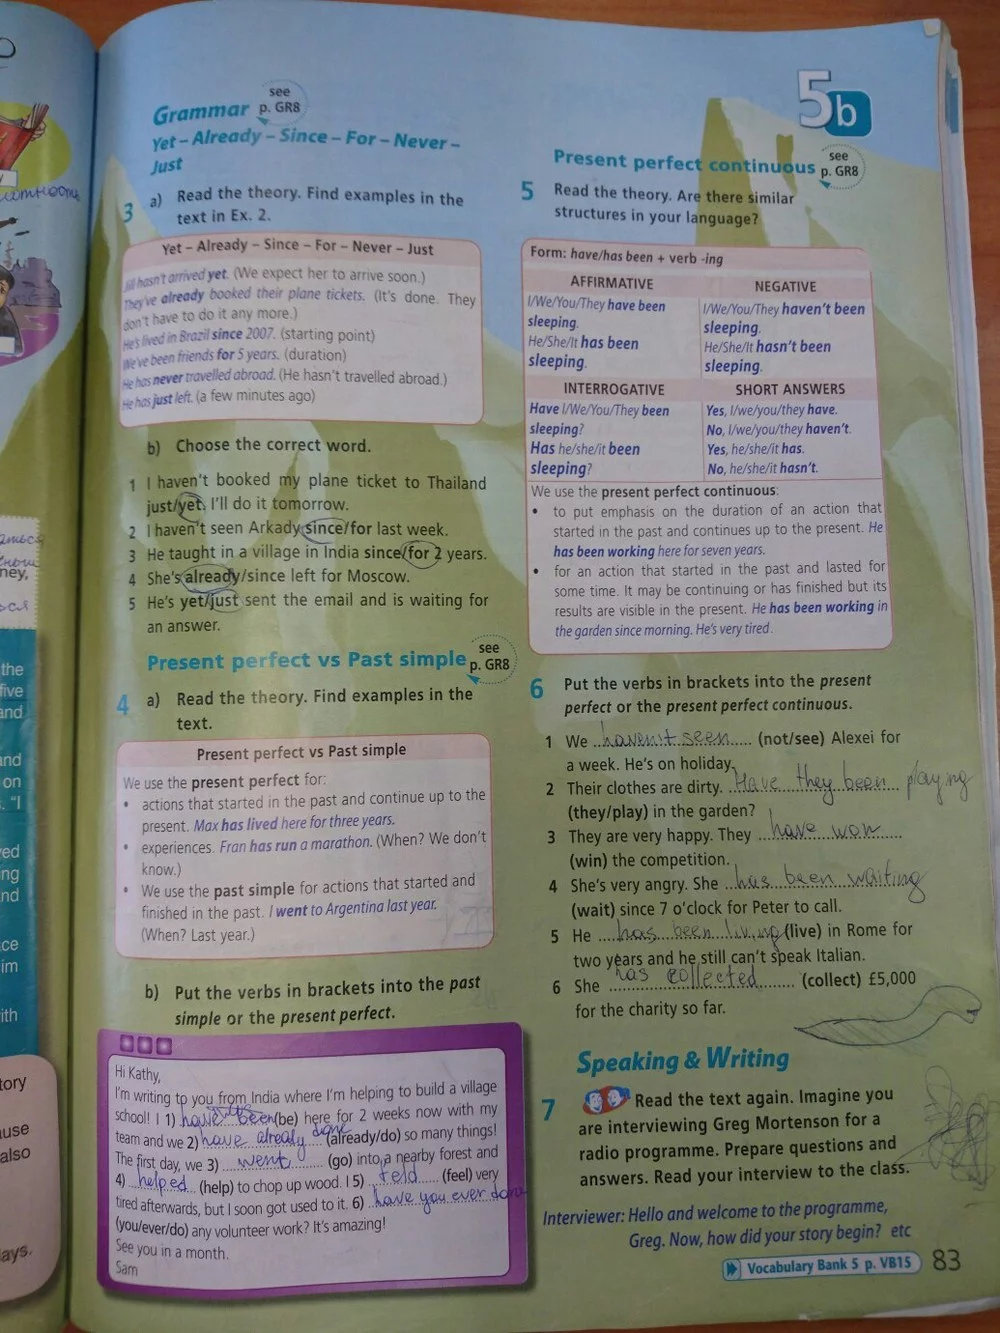 see
Grammar p. GR8
Yet – Already – Since – For – Never –
Just
3 a) Read the theory. Find examples in the
text in Ex. 2.
Yet – Already – Since – For – Never – Just
Jill hasn't arrived yet. (We expect her to arrive soon.)
They've already booked their plane tickets. (It's done. They
don't have to do it any more.)
He's lived in Brazil since 2007. (starting point)
We've been friends for 5 years. (duration)
He has never travelled abroad. (He hasn't travelled abroad.)
He has just left. (a few minutes ago)
b) Choose the correct word.
1 I haven't booked my plane ticket to Thailand
just/yet. I'll do it tomorrow.
2 I haven't seen Arkady since/for last week.
3 He taught in a village in India since/for 2 years.
4 She's already/since left for Moscow.
5 He's yet/just sent the email and is waiting for
an answer.
Present perfect vs Past simple see
p. GR8
4 a) Read the theory. Find examples in the
text.
Present perfect vs Past simple
We use the present perfect for:
• actions that started in the past and continue up to the
present. Max has lived here for three years.
• experiences. Fran has run a marathon. (When? We don't
know.)
• We use the past simple for actions that started and
finished in the past. I went to Argentina last year.
(When? Last year.)
b) Put the verbs in brackets into the past
simple or the present perfect.
Hi Kathy,
I'm writing to you from India where I'm helping to build a village
school! I 1) have been (be) here for 2 weeks now with my
team and we 2) have already done (already/do) so many things!
The first day, we 3) went (go) into a nearby forest and
4) helped (help) to chop up wood. I 5) feld (feel) very
tired afterwards, but I soon got used to it. 6) have you ever done
(you/ever/do) any volunteer work? It's amazing!
See you in a month.
Sam
5b
Present perfect continuous see
p. GR8
5 Read the theory. Are there similar
structures in your language?
Form: have/has been + verb -ing
AFFIRMATIVE
I/We/You/They have been
sleeping.
He/She/It has been
sleeping.
NEGATIVE
I/We/You/They haven't been
sleeping.
He/She/It hasn't been
sleeping.
INTERROGATIVE
Have I/We/You/They been
sleeping?
Has he/she/it been
sleeping?
SHORT ANSWERS
Yes, I/we/you/they have.
No, I/we/you/they haven't.
Yes, he/she/it has.
No, he/she/it hasn't.
We use the present perfect continuous:
• to put emphasis on the duration of an action that
started in the past and continues up to the present. He
has been working here for seven years.
• for an action that started in the past and lasted for
some time. It may be continuing or has finished but its
results are visible in the present. He has been working in
the garden since morning. He's very tired.
6 Put the verbs in brackets into the present
perfect or the present perfect continuous.
1 We haven't seen (not/see) Alexei for
a week. He's on holiday.
2 Their clothes are dirty. Have they been playing
(they/play) in the garden?
3 They are very happy. They have won
(win) the competition.
4 She's very angry. She has been waiting
(wait) since 7 o'clock for Peter to call.
5 He has been living (live) in Rome for
two years and he still can't speak Italian.
6 She has collected (collect) £5,000
for the charity so far.
Speaking & Writing
7 Read the text again. Imagine you
are interviewing Greg Mortenson for a
radio programme. Prepare questions and
answers. Read your interview to the class.
Interviewer: Hello and welcome to the programme,
Greg. Now, how did your story begin? etc
Vocabulary Bank 5 p. VB15 83